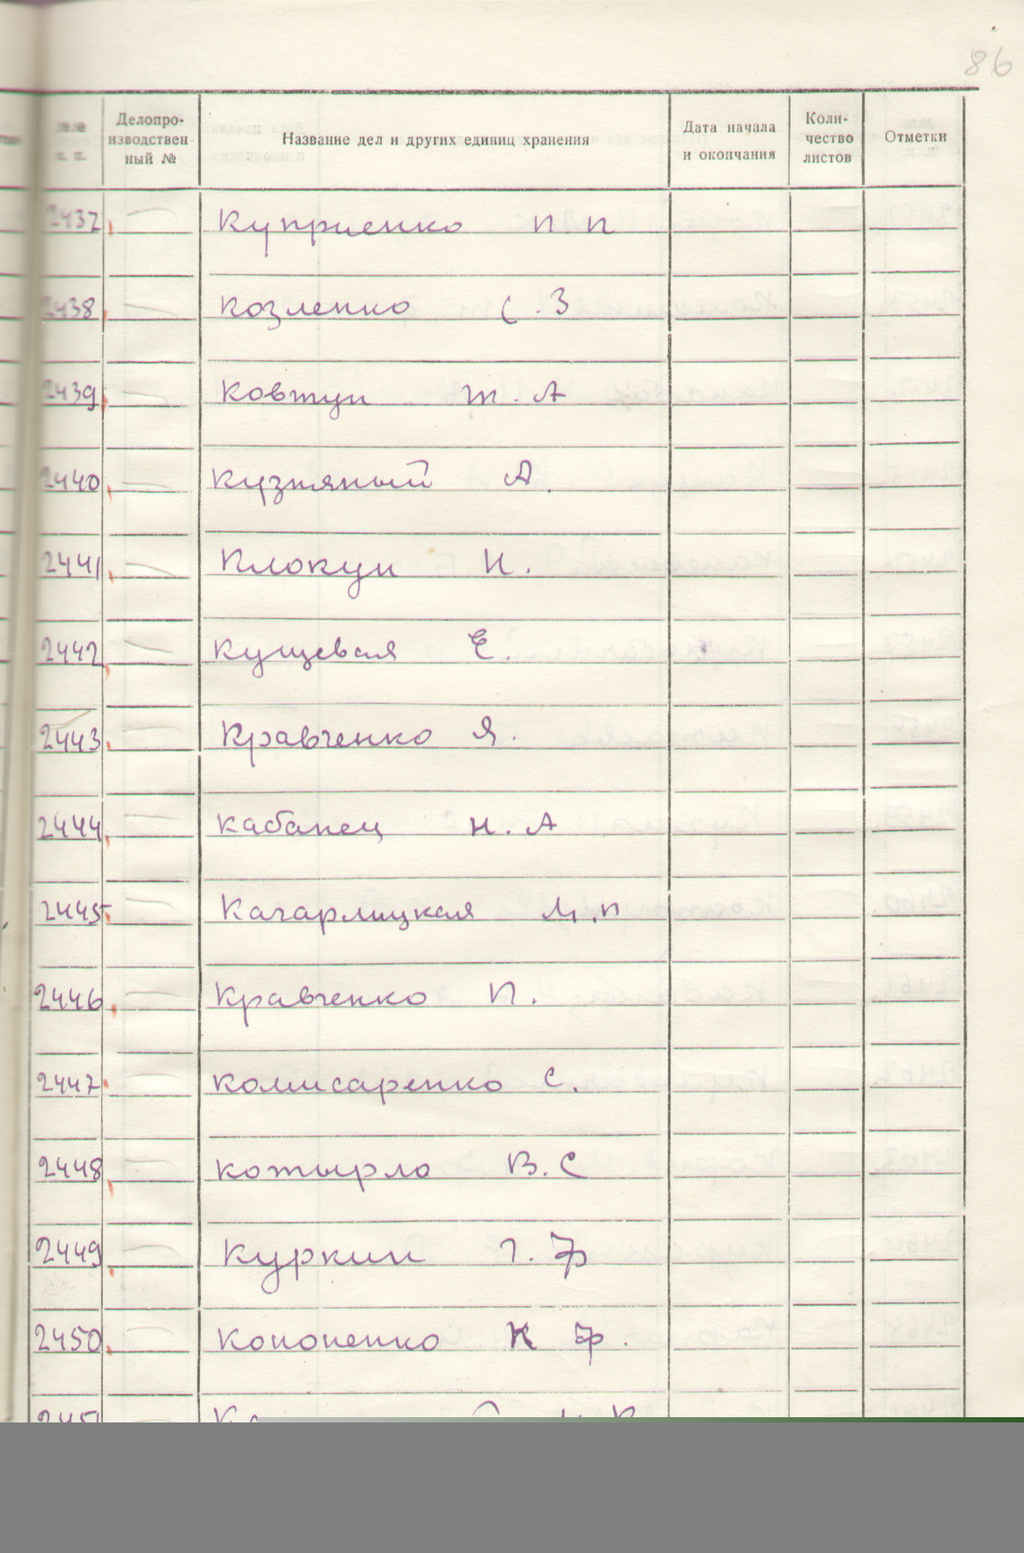 86
Делопро-
изводствен-
ный №
Название дел и других единиц хранения
Дата начала
и окончания
Коли-
чество
листов
Отметки
2437 Куприенко П.П
2438 Козленко С.З
2439 Ковтун Т.А
2440 Кузняный А.
2441 Клокун Н.
2442 Кущевая Е.
2443 Кравченко Я.
2444 Кабанец Н.А
2445 Кагарлицкая М.П
2446 Кравченко П.
2447 Комисаренко С.
2448 Котырло В.С
2449 Куркин Г.Ф
2450 Кононенко К Ф.
2451